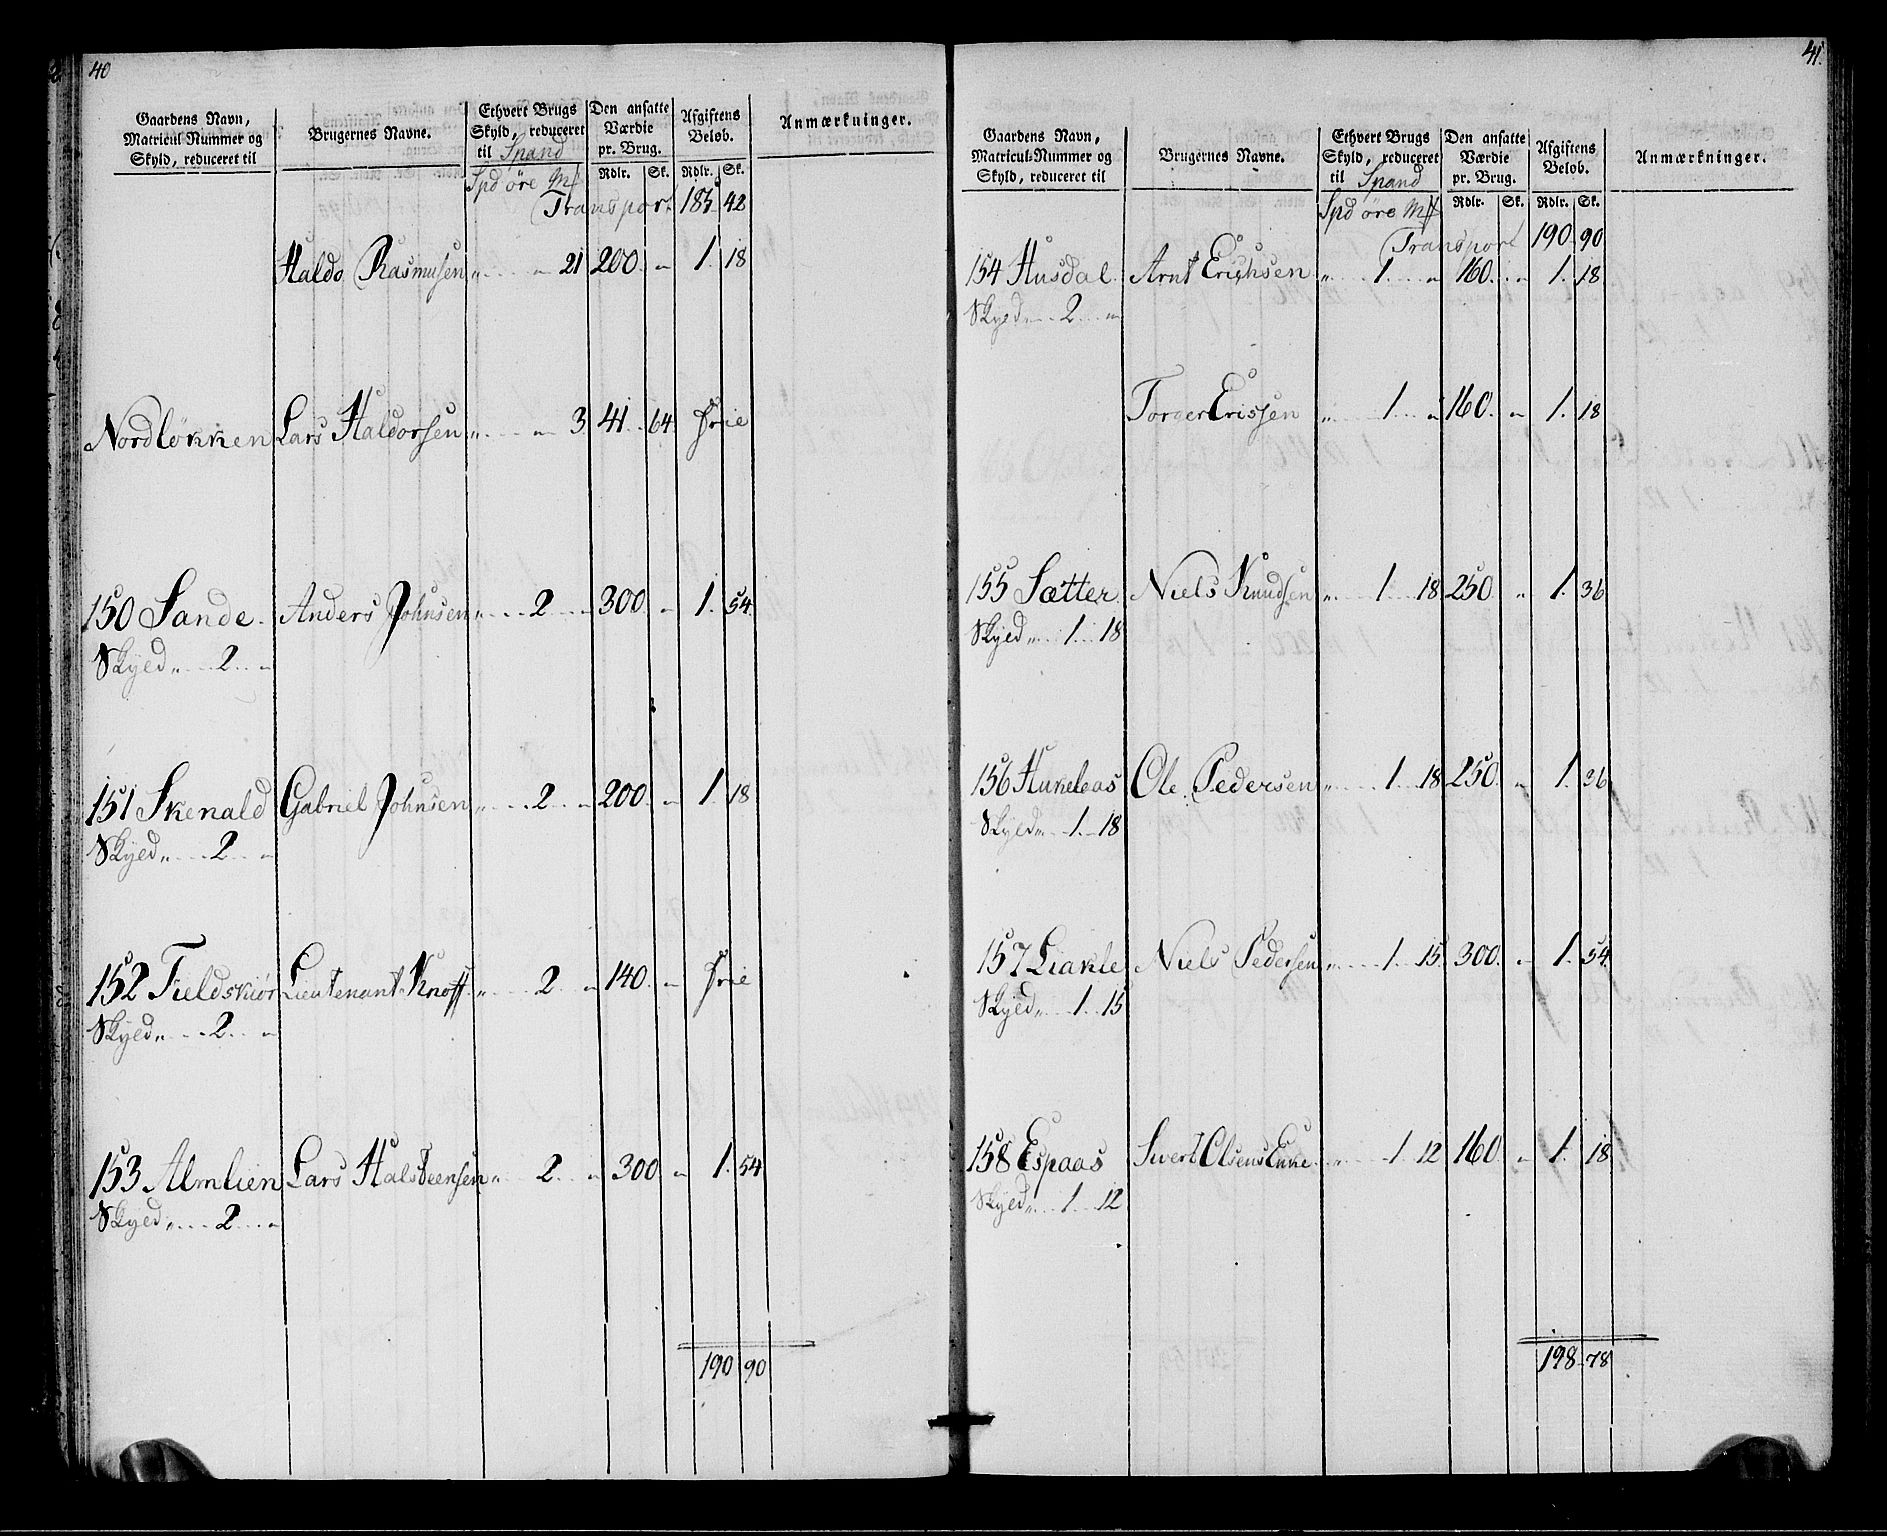 40
Gaardens Navn, Matricul-Nummer og Skyld, reduceret til
Brugernes Navne.
Ethvert Brugs Skyld, reduceret til Spand
Den ansatte Værdie pr. Brug.
Afgiftens Beløb.
Anmærkninger.
Spd øre Mk Rdlr. Sk. Rdlr. Sk.
Transport 185 42
Haldo Rasmusen „ „ 21 200 „ 1. 18
Nordløkken Lars Haldorsen „ „ 3 41 64 Frie
150 Sande. Anders Johnsen „ 2 „ 300 „ 1. 54
Skyed „ 2 „
151 Skenald Gabriel Johnsen „ 2 „ 200 „ 1 18
Skyed „ 2 „
152 Fieldskiør Lieutenant Knoff „ 2 „ 140. „ Frie
Skyed „ 2 „
153 Almlien Lars Halsteensen „ 2 „ 300 „ 1. 54
Skyed „ 2 „
190 90
41.
Gaardens Navn, Matricul-Nummer og Skyld, reduceret til
Brugernes Navne.
Ethvert Brugs Skyld, reduceret til Spand
Den ansatte Værdie pr. Brug.
Afgiftens Beløb.
Anmærkninger.
Spd øre Mk Rdlr. Sk. Rdlr. Sk.
Transport 190 90
154 Husdal Arnt Erichsen „ 1 „ 160. „ 1. 18
Skyed „ 2 „
Torger Erissen „ 1 „ 160. „ 1. 18
155 Sætter Niels Knudsen „ 1 18 250 „ 1. 36
Skyed „ 1 18
156 Hukeleas Ole Pedersen „ 1 18 250. „ 1. 36
Skyed „ 1. 18
157 Liakle Niels Pedersen „ 1 15 300. „ 1. 54
Skyed „ 1. 15
158 Espaas Sivert Olsens Enke „ 1 12 160. „ 1. 18
Skyed „ 1 12
198 78